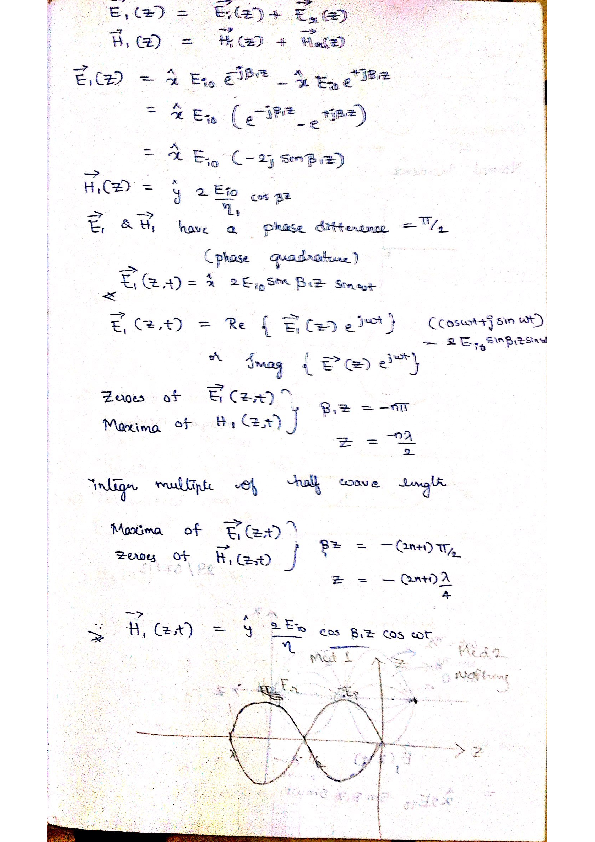 E⃗₁(z) = E⃗ᵢ(z) + E⃗ᵣ(z)
H⃗₁(z) = H⃗ᵢ(z) + H⃗ᵣ(z)
E⃗₁(z) = x̂ Eᵢ₀ e^-jβ₁z - x̂ Eᵢ₀ e^+jβ₁z
= x̂ Eᵢ₀ (e^-jβ₁z - e^+jβ₁z)
= x̂ Eᵢ₀ (-2j sin β₁z)
H⃗₁(z) = ŷ 2 Eᵢ₀/η₁ cos βz
E⃗₁ & H⃗₁ have a phase difference = π/2
(phase quadrature)
E⃗₁(z,t) = x̂ 2Eᵢ₀ sin β₁z sin ωt
E⃗₁(z,t) = Re { E⃗₁(z) e^jωt } (cosωt+j sin ωt)
- 2Eᵢ₀ sinβ₁z sinωt
or Imag { E⃗(z) e^jωt }
Zeroes of E⃗₁(z,t) } β₁z = -nπ
Maxima of H₁(z,t) } z = -nλ/2
integer multiple of half wave length
Maxima of E⃗₁(z,t) } βz = -(2n+1) π/2
zeroes of H⃗₁(z,t) } z = -(2n+1) λ/4
H⃗₁(z,t) = ŷ 2Eᵢ₀/η cos β₁z cos ωt
Med 1
Med 2
Nothing
z